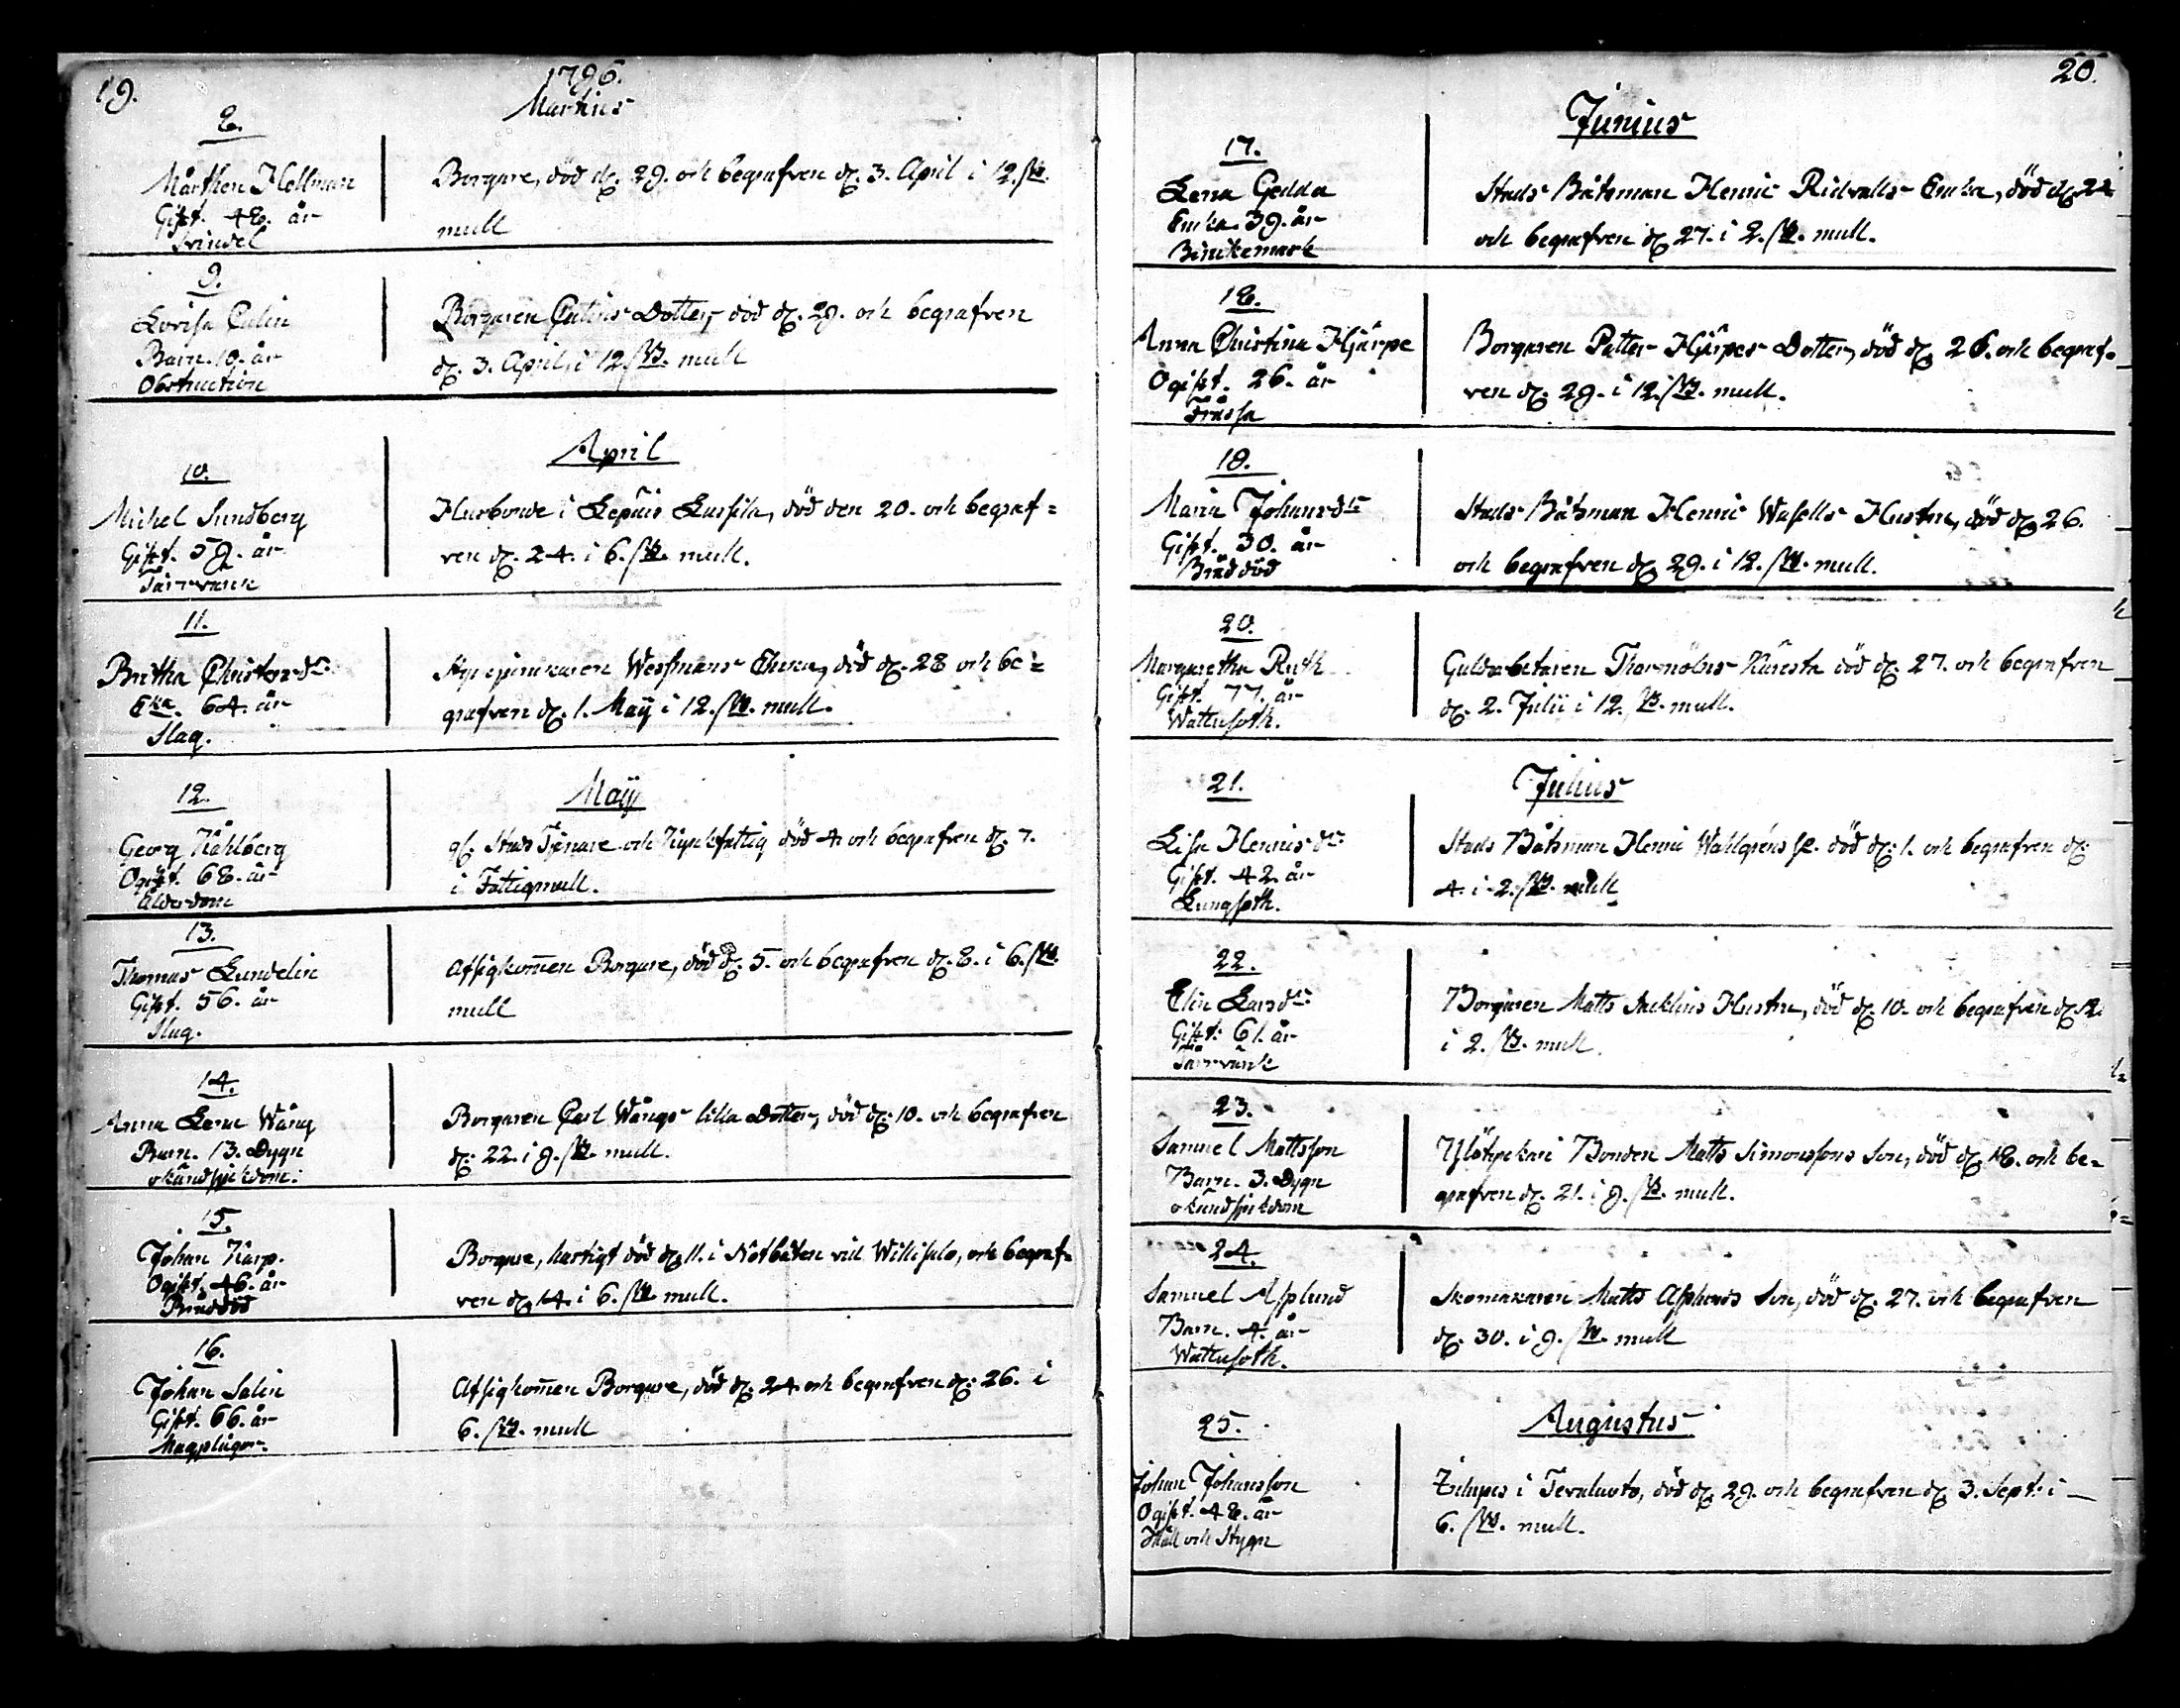 19.
1796.
Martius
8.
Mårthen Hellman
Gift. 48. år
Svindel
Borgare, död d. 29. och begrafven d. 3. April i 12. ß.
mull
9.
Lovisa Calin
Barn. 10. år
Obstruction
Borgaren Calins Dotter, död d. 29. och begrafven
d. 3. April, i 12. ß. mull
April
10.
Michel Sundberg
Gift. 59. år
Husbonde i Lepäis Lassila, död den 20. och begraf=
ven d. 24. i 6. ß. mull.
11.
Britha Christersdr.
Eka. 64. år
Slag.
Westmans Enka, död d. 28 och be=
grafven d. 1. Maÿ i 12. ß. mull.
Maÿ
12.
Georg Kåhlberg
Ogift. 68. år
Ålderdom
gl. Stads Tjenare och död 4 och begrafven d. 7.
i Fattigmull.
13.
Thomas Lundelin
Gift. 56. år
Slag.
Afsigkom̄en Borgare, död d. 5. och begrafven d. 8. i 6. ß.
mull
14.
Anna Lena Wång
Barn. 13. Dygn
okändsjukdom.
Borgaren Carl Wångs lilla Dotter, död d. 10. och begrafven
d. 22. i 9. ß. mull.
15.
Johan Karp.
Ogift. 46. år
Bråddöd
Borgare, hastigt död d. 11. i Notbåten vid och begraf=
ven d. 14. i 6. ß. mull.
16.
Johan Salin
Gift. 66. år
Magplågor
Afsigkom̄en Borgare, död d. 24 och begrafven d. 26. i
6. ß. mull
20.
Junius
17.
Lena Gedda
Enka. 39. år
Stads Båtsman Henric Ridvalls Enka, död d. 24
och begrafven d. 27. i 2. ß. mull.
18.
Anna Christina Hjärpe
Ogift. 26. år
Fråssa
Borgaren Petter Hjärpes Dotter, död d. 26. och begraf=
ven d. 29. i 12. ß. mull.
19.
Maria Johansdr
Gift. 30. år
Bråddöd
Stads Båtsman Henric Wasells Hustru, död d. 26.
och begrafven d. 29. i 12. ß. mull.
20.
Margaretha Ruth
Gift. 77. år
Wattusoth.
Guldarbetaren död d. 27. och begrafven
d. 2. Julii i 12. ß. mull.
Julius
21.
Lisa Henricsdr.
Gift. 42. år
Lungsoth.
Stads Båtsman Henric Wahlgréns död d. 1. och begrafven d.
4. i 2. ß. mull
22.
Elin Larsdr.
Gift. 61. år
Borgaren Matts Hustru, död d. 10. och begrafven d. 12.
i 2. ß. mull.
23.
Samuel Mattsson
Barn. 3. Dygn
okändsjukdom
Ylötyckari Bonden Matts Simonssons Son, död d. 18. och be=
grafven d. 21. i 9. ß. mull.
24.
Samuel Asplund
Barn. 4. år
Wattusoth.
Skomakaren Matts Asplunds Son, död d. 27. och begrafven
d. 30. i 9. ß. mull
Augustus
25.
Johan Johansson
Ogift. 48. år
Håll och Stygn
i Tervaluoto, död d. 29. och begrafven d. 3. Sept. i
6. ß. mull.